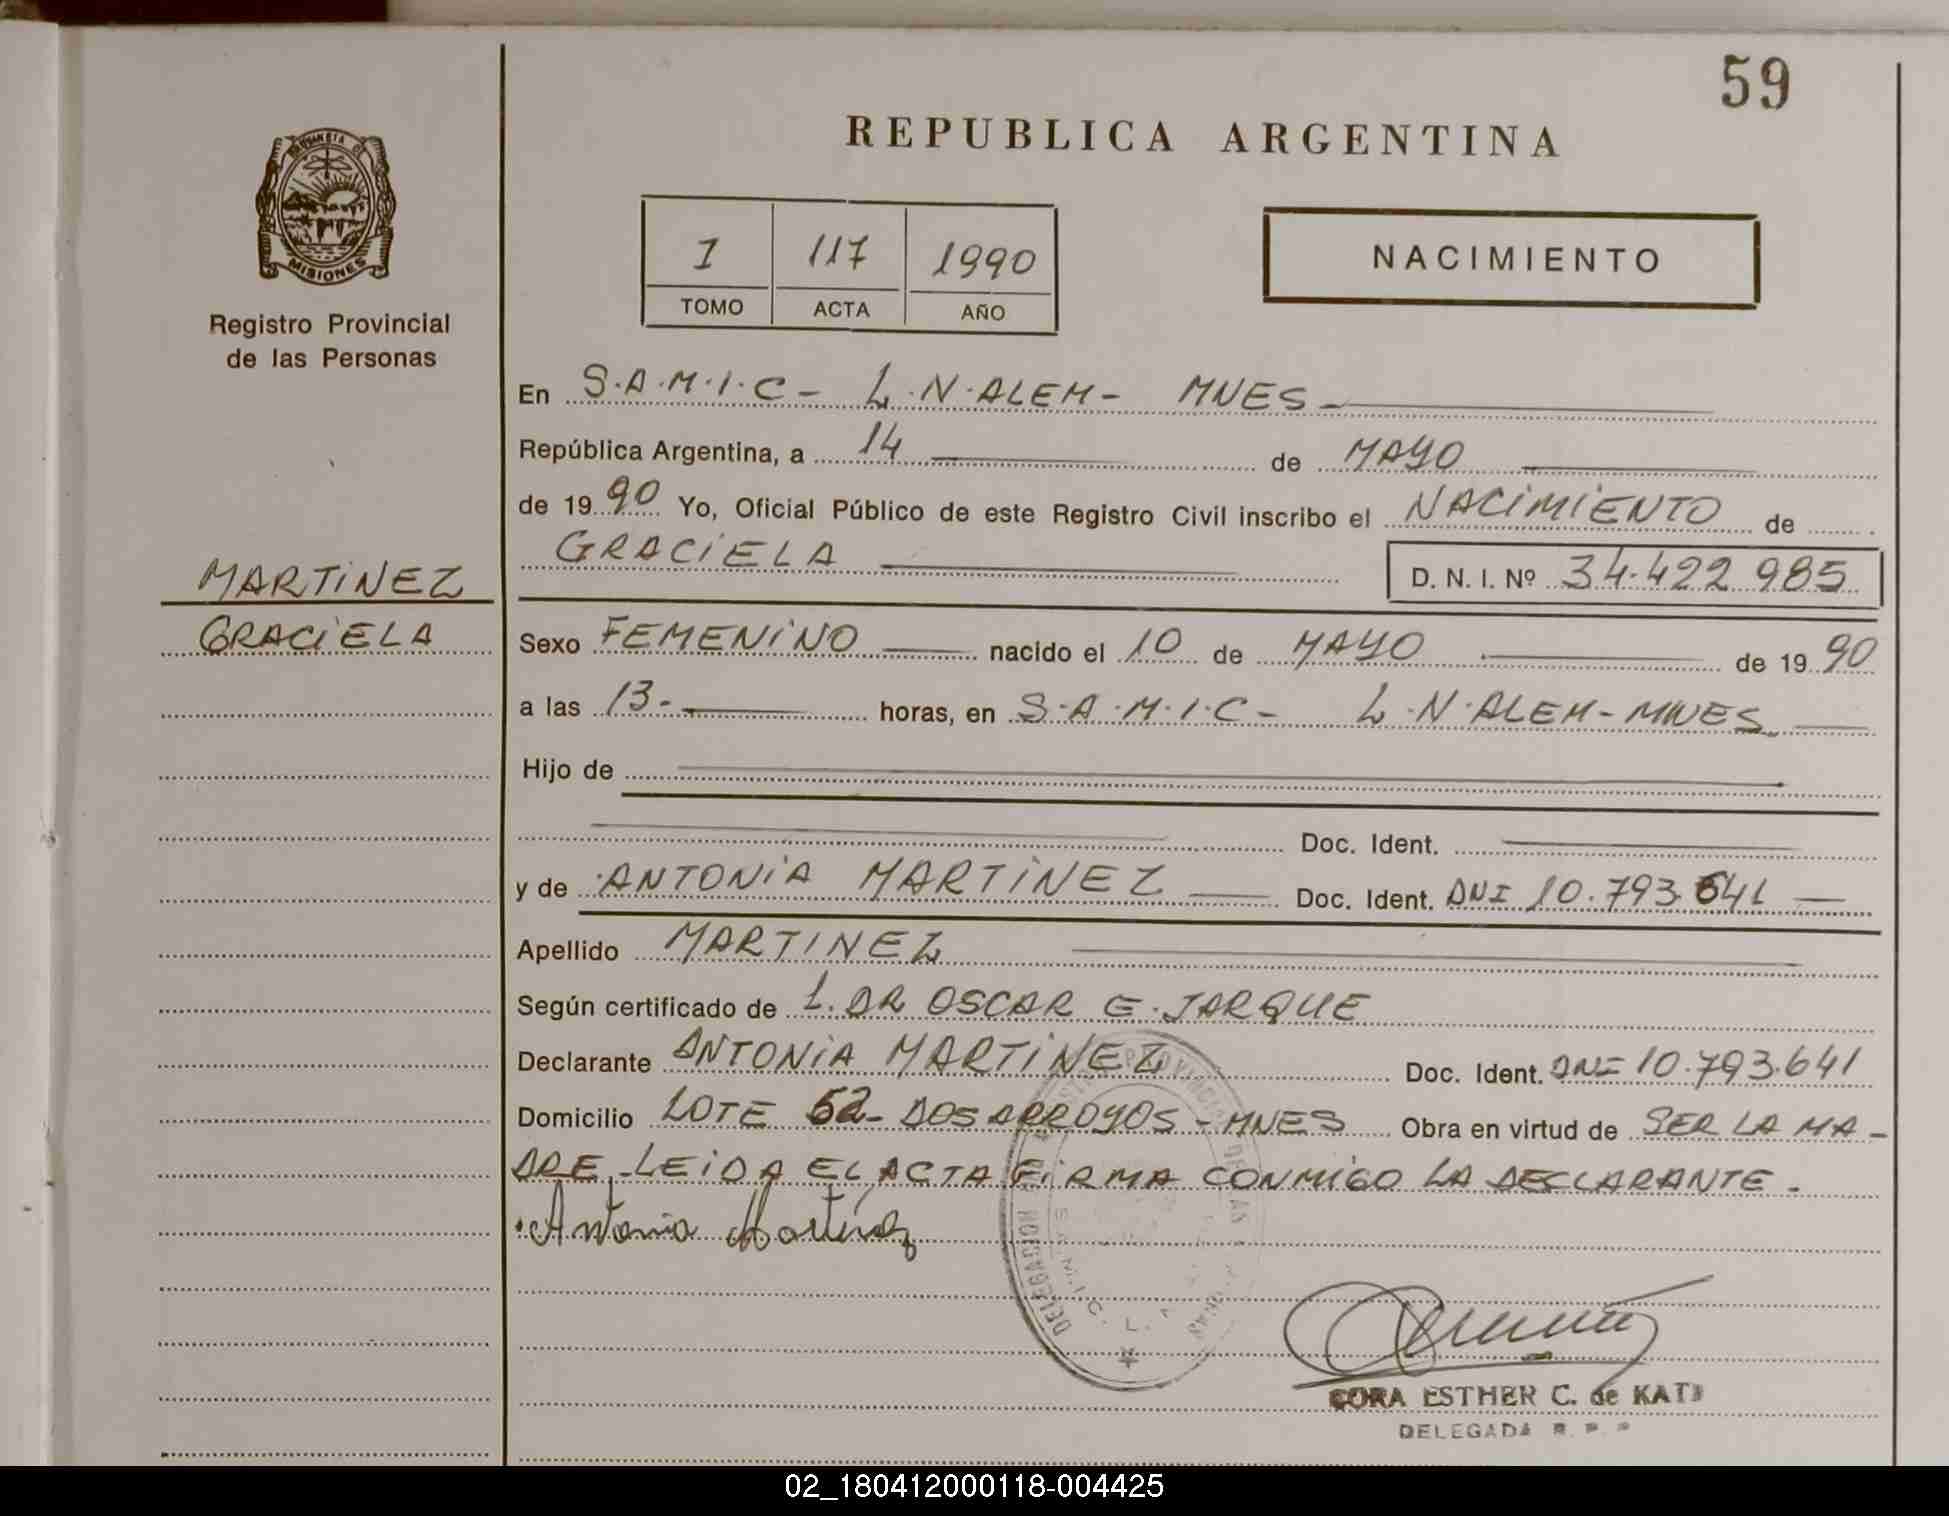 59
REPUBLICA ARGENTINA
MISIONES
Registro Provincial
de las Personas
I 117 1990
TOMO ACTA AÑO
NACIMIENTO
En S.A.M.I.C- L.N.ALEM- MNES-
República Argentina, a 14 de MAYO
de 1990 Yo, Oficial Público de este Registro Civil inscribo el NACIMIENTO de
GRACIELA D. N. I. Nº 34.422.985
MARTINEZ
GRACIELA
Sexo FEMENINO nacido el 10 de MAYO de 1990
a las 13- horas, en S.A.M.I.C- L.N.ALEM-MNES
Hijo de
Doc. Ident.
y de ANTONIA MARTINEZ Doc. Ident. DNI 10.793.641
Apellido MARTINEZ
Según certificado de L. DR OSCAR E. JARQUE
Declarante ANTONIA MARTINEZ Doc. Ident. DNI 10.793.641
Domicilio LOTE 62- DOS ARROYOS - MNES Obra en virtud de SER LA MA-
DRE-LEIDA EL ACTA FIRMA CONMIGO LA DECLARANTE-
Antonia Martinez
CORA ESTHER C. de KATZ
DELEGADA R. P. P
02_180412000118-004425